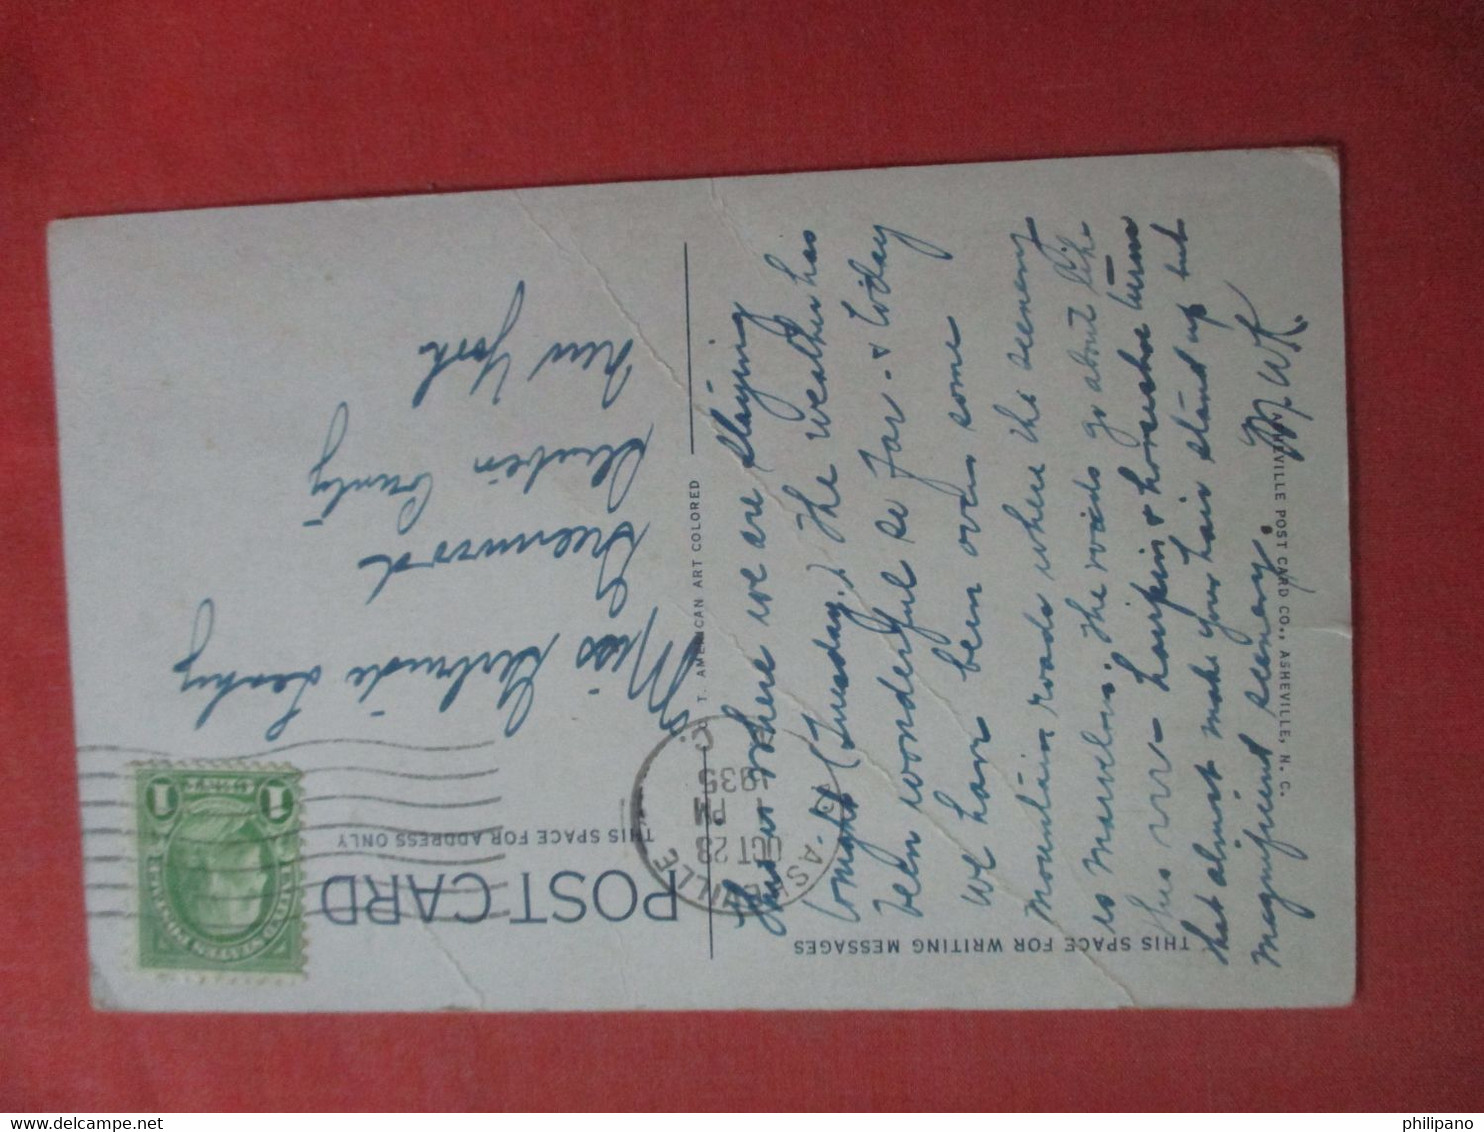 POST CARD
THIS SPACE FOR ADDRESS ONLY
THIS SPACE FOR WRITING MESSAGES
ASHEVILLE
OCT 23
PM
1935
C.
1 1
This is where we are staying
tonight (Tuesday.) The weather has
been wonderful so far - & today
we have been over some
mountain roads where the scenery
is marvelous. The roads go about like
this - hairpin & horseshoe turns
that almost make your hair stand up but
magnificent scenery.
M.W.K.
Miss Gertrude Leahy
Greenwood
Steuben County
New York
T. AMERICAN ART COLORED
ASHEVILLE POST CARD CO., ASHEVILLE, N. C.
philipano